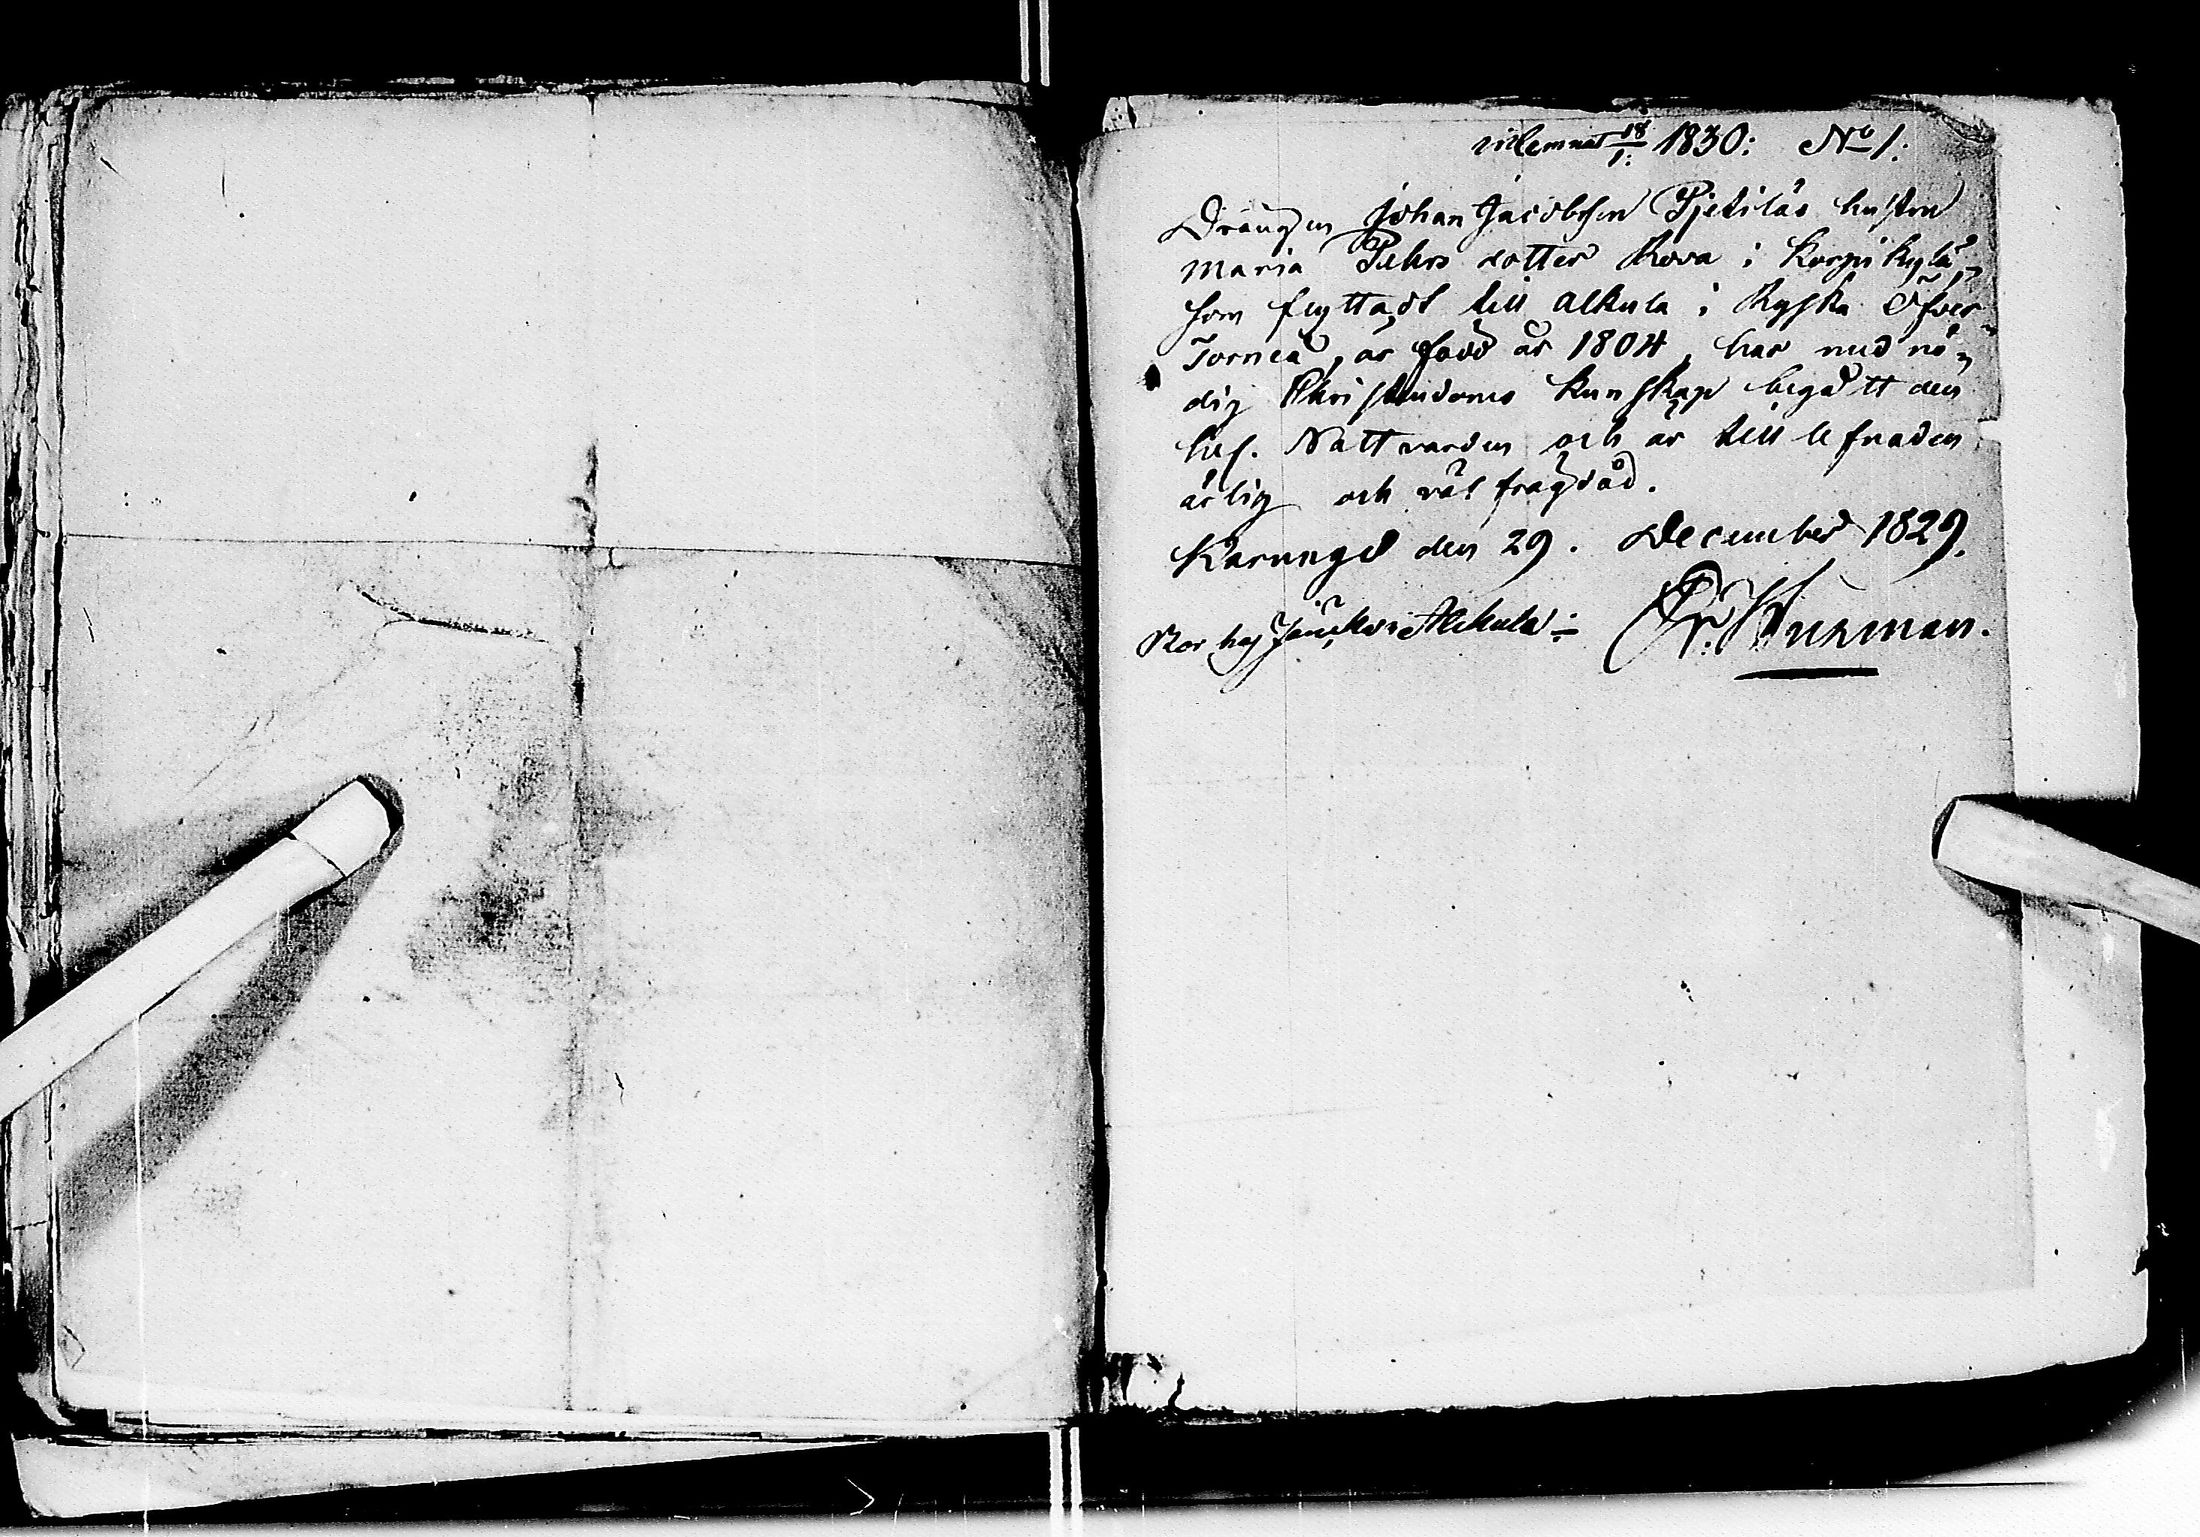 inlemnat 18/1: 1830: No 1:
Drängen Johan Jacobsson Pjetiläs hustru
Maria Pehrs dotter Rova i Korpikylä,
som flyttadt till Alkula i Ryska Öfver
Torneå, är född år 1804, har med nö-
dig Christendoms kunskap begått den
hel. Nattvarden och är till lefnaden
ärlig och väl frägdad.
Karungi den 29. December 1829.
Bor hos i Alkula Wunman.